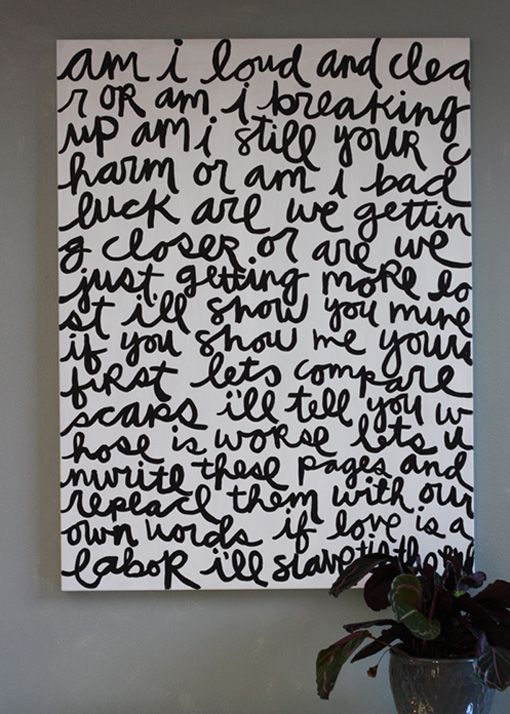 am i loud and clea
r OR am i breaking
up am i still your c
harm or am i bad
luck are we gettin
g closer or are we
just getting more lo
st ill show you mine
if you show me yours
first lets compare
scars i'll tell you w
hose is worse lets u
nwrite these pages and
replace them with our
own words if love is a
labor i'll slave til the